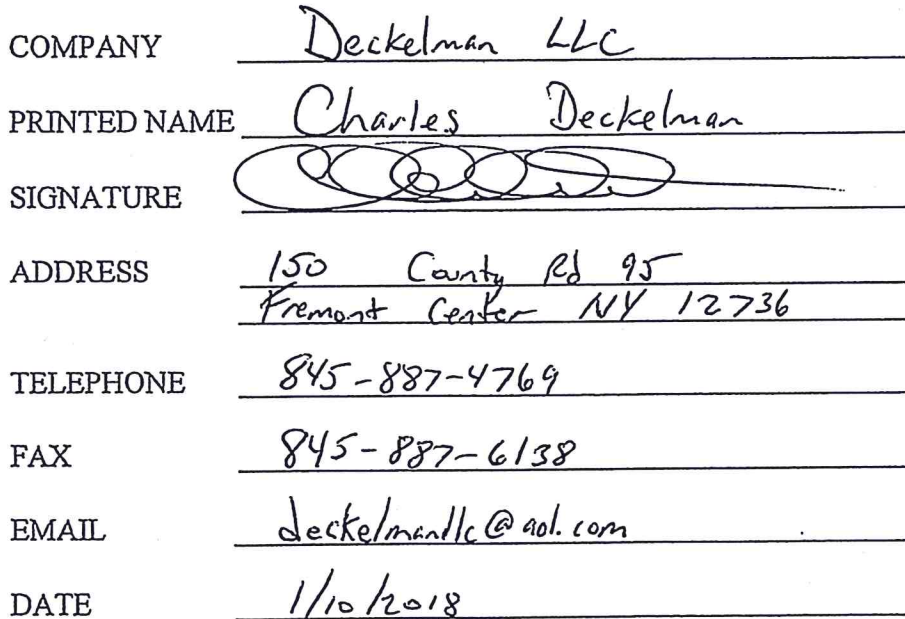 COMPANY Deckelman LLC
PRINTED NAME Charles Deckelman
SIGNATURE
ADDRESS 150 County Rd 95
Fremont Center NY 12736
TELEPHONE 845-887-4769
FAX 845-887-6138
EMAIL deckelmanllc@aol.com
DATE 1/10/2018